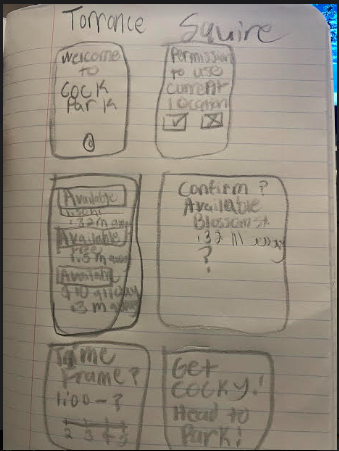 Torrance Squire
Welcome
TO
COCK
Park
Permission
to use
current
Location
Available
.32 m away
Available
1.5 m
Available
$10 all day
.3 m
Confirm ?
Available
Blossom st
.32 m away
?
Time
Frame?
1:00 - ?
2 3 4 5
Get
COCKY!
Head to
Park!